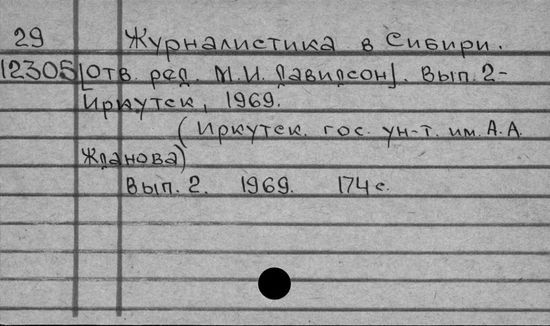 29 Журналистика в Сибири.
12305 [Отв. ред. М.И. Давидсон]. Вып. 2-
Иркутск, 1969.
(Иркутск. гос. ун-т. им. А.А.
Жданова)
Вып. 2. 1969. 174 с.